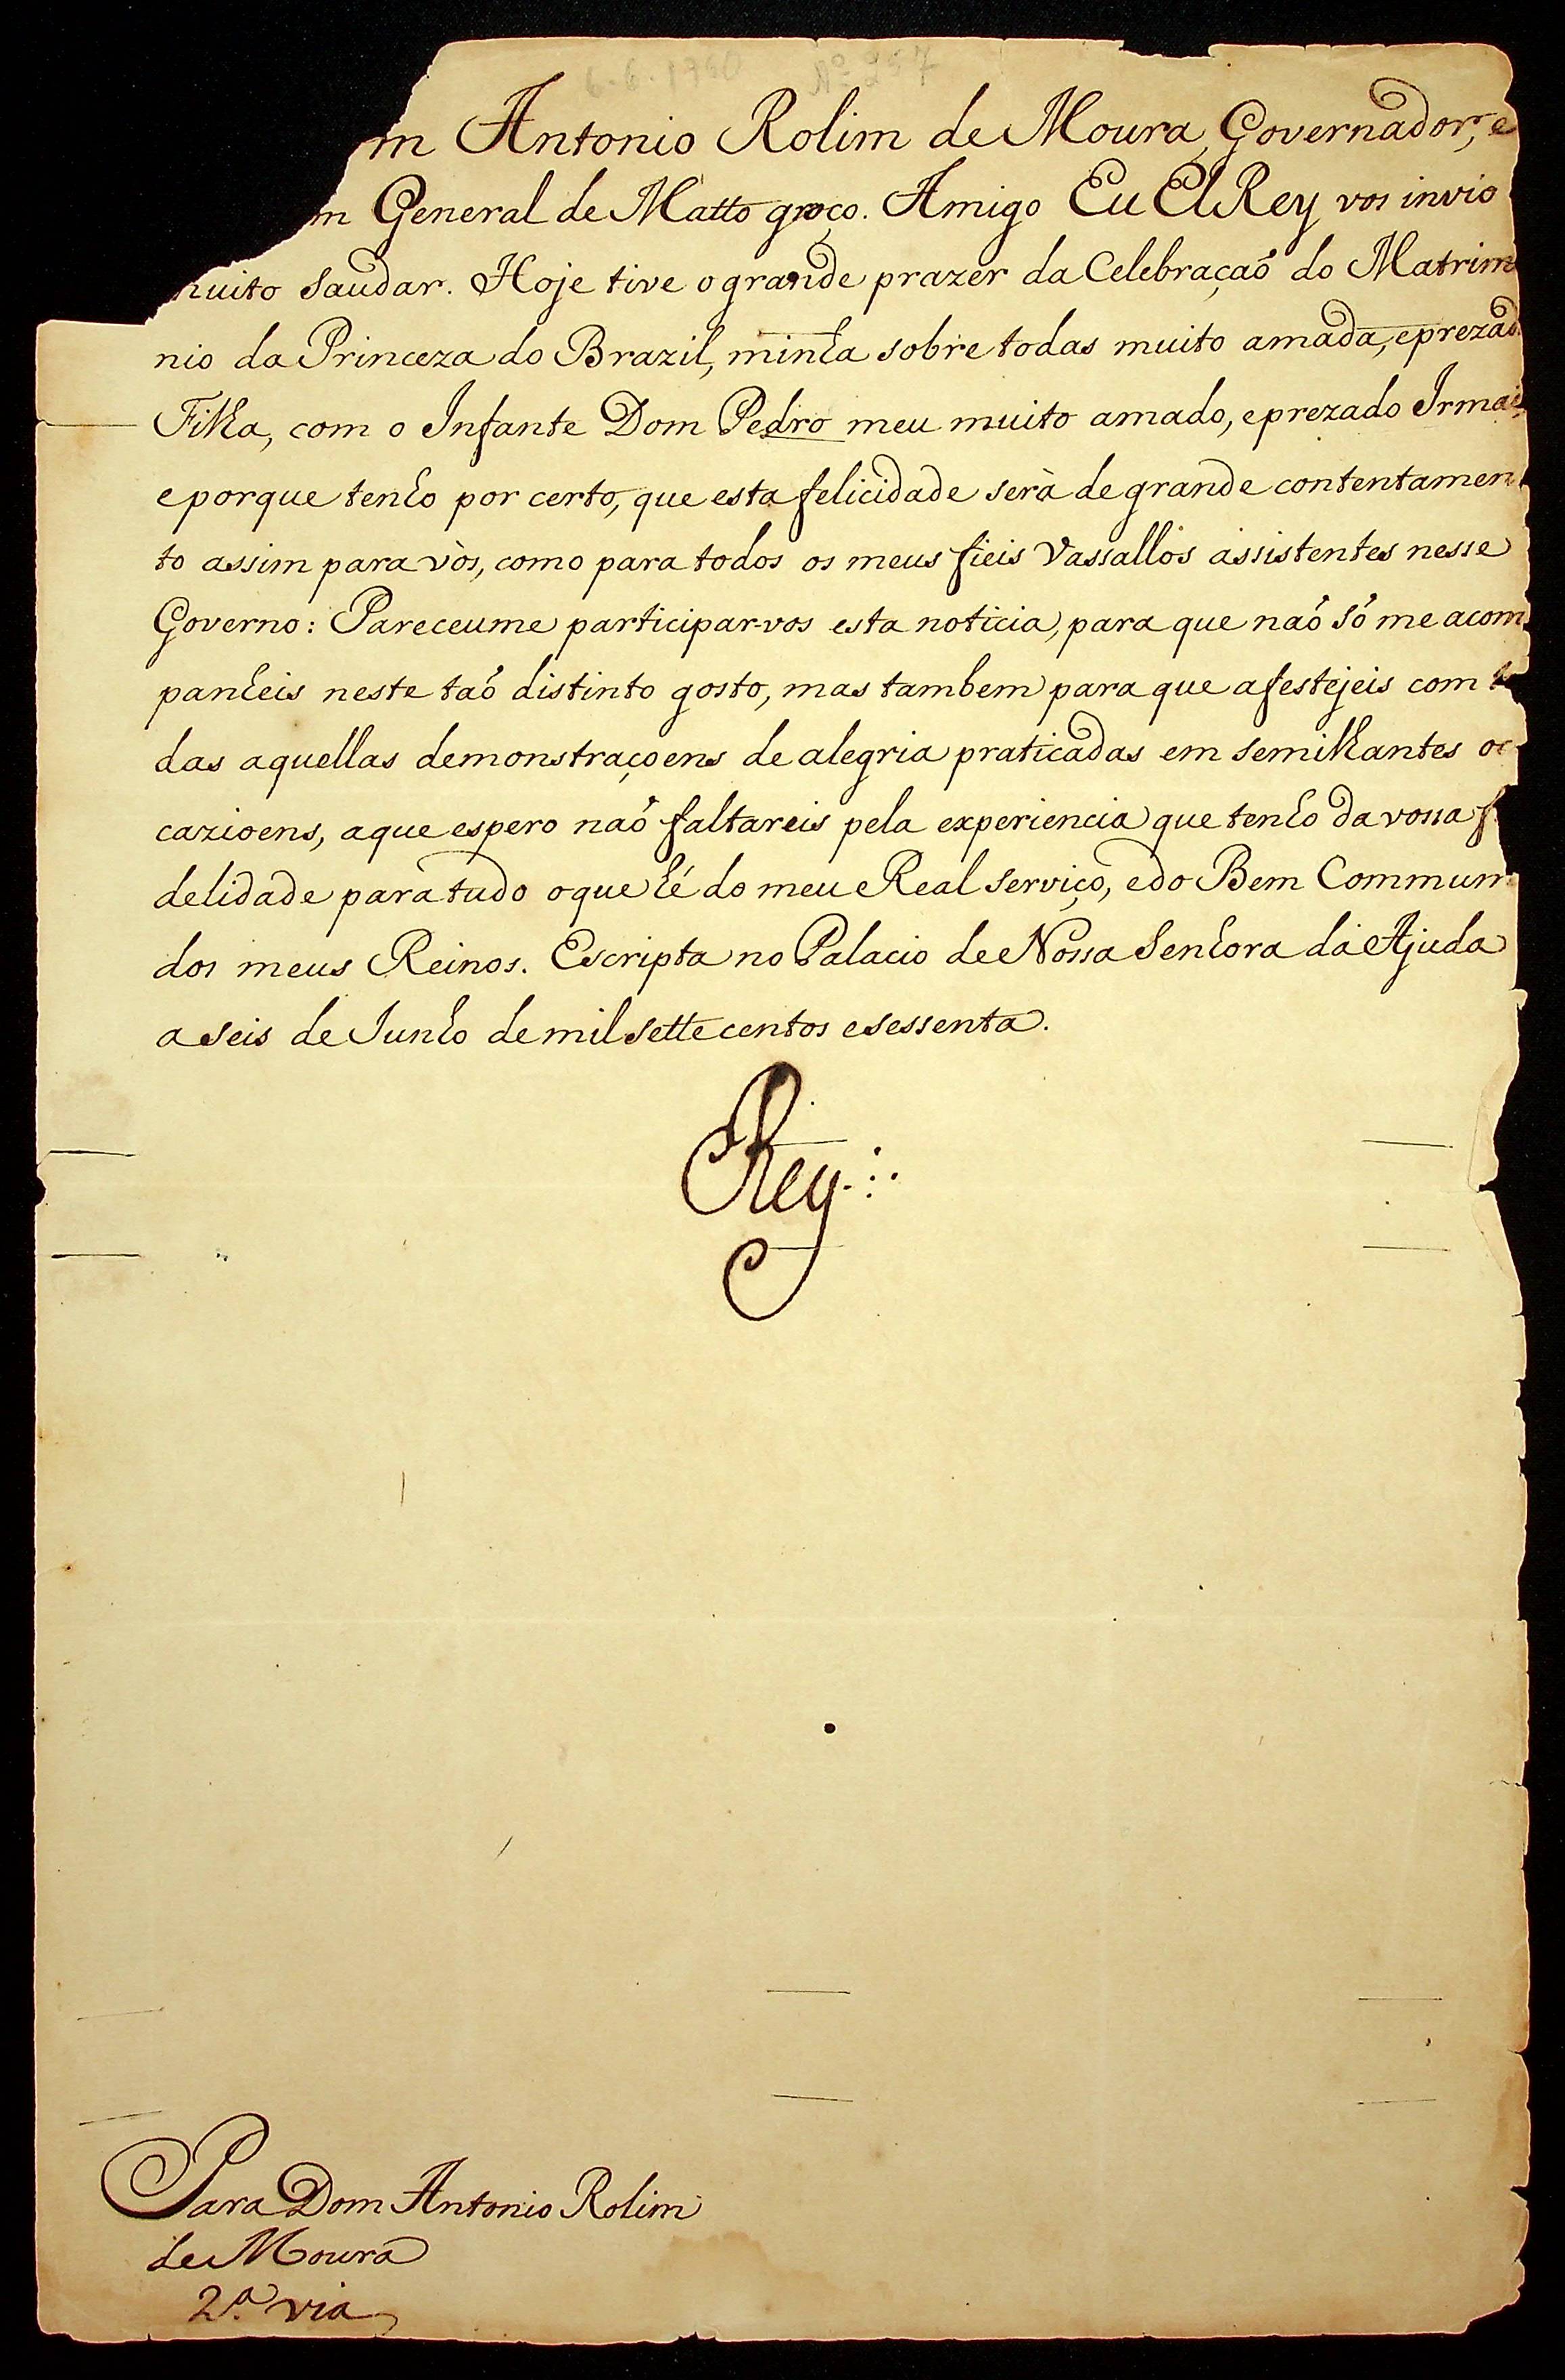 6.6.1760 Nº 257
m Antonio Rolim de Moura, Governador, e
m General de Matto groço. Amigo Eu ElRey vos invio
muito saudar. Hoje tive o grande prazer da Celebraçaõ do Matrim
nio da Princeza do Brazil, minha sobre todas muito amada, e prezad
Filha, com o Infante Dom Pedro meu muito amado, e prezado Irmaõ,
e porque tenho por certo, que esta felicidade serà de grande contentamen
to assim para vòs, como para todos os meus fieis Vassallos assistentes nesse
Governo: Pareceume participar-vos esta noticia, para que naõ só me acom
panheis neste taõ distinto gosto, mas tambem para que a festejeis com to
das aquellas demonstraçoens de alegria praticadas em similhantes oc
cazioens, a que espero naõ faltareis pela experiencia que tenho da vossa f
delidade para tudo o que hé do meu Real serviço, e do Bem Commum
dos meus Reinos. Escripta no Palacio de Nossa Senhora da Ajuda
a seis de Junho de mil sette centos e sessenta.
Rey
Para Dom Antonio Rolim
de Moura
2.ª via